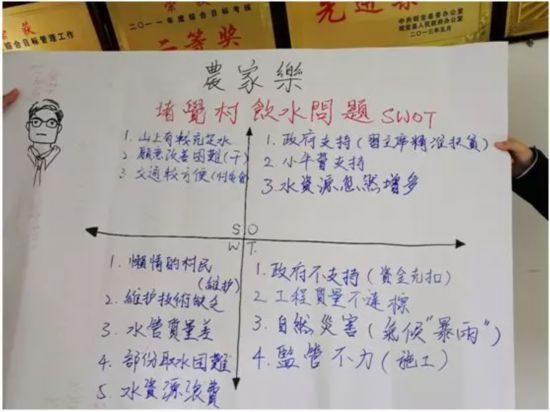 二〇一一年度综合目标考核
二等奖
综合目标管理工作
先进集
中共昭觉县委办公室
昭觉县人民政府办公室
二〇一三年五月
農家樂
堵覺村飲水問題 SWOT
1. 山上有較充足水
2. 願意改善困難(干)
3. 交通較方便
1. 政府支持(習主席精准扶貧)
2. 小平贊支持
3. 水資源忽然增多
S O
W T
1. 懶惰的村民
(維护)
2. 維护技術缺乏
3. 水管質量差
4. 部份取水困難
5. 水資源浪費
1. 政府不支持(資金克扣)
2. 工程質量不達標
3. 自然災害(氣候"暴雨")
4. 監管不力(施工)